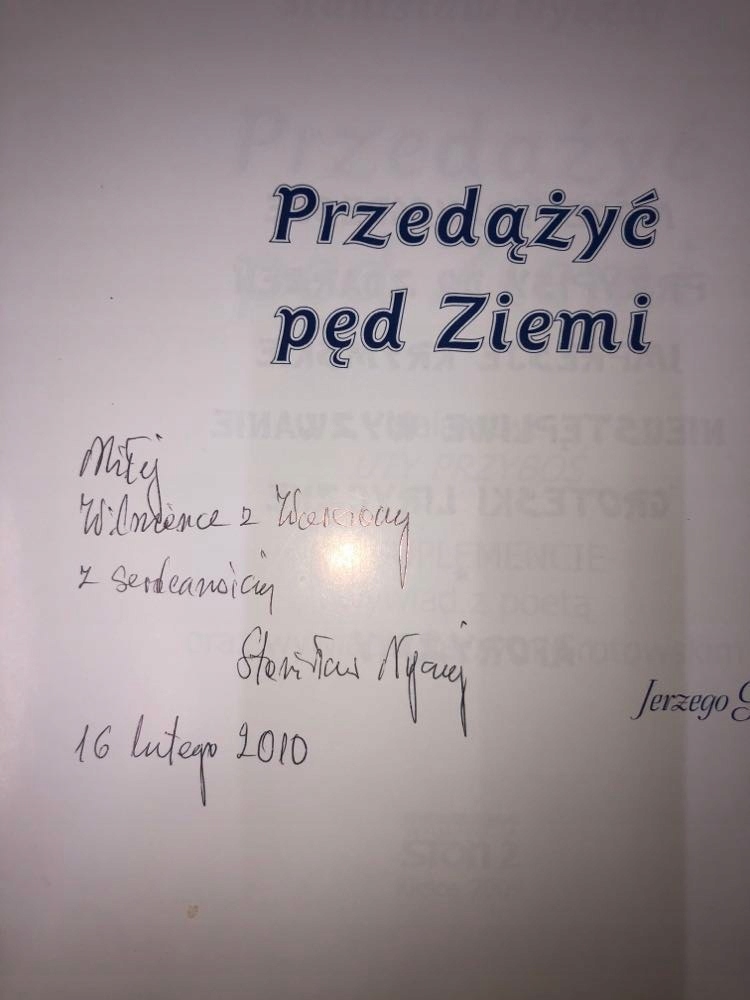 Przedążyć
pęd Ziemi
Miłej
Wilniance z Warszawy
z serdecznością
Stanisław Nyczaj
16 lutego 2010
Jerzego